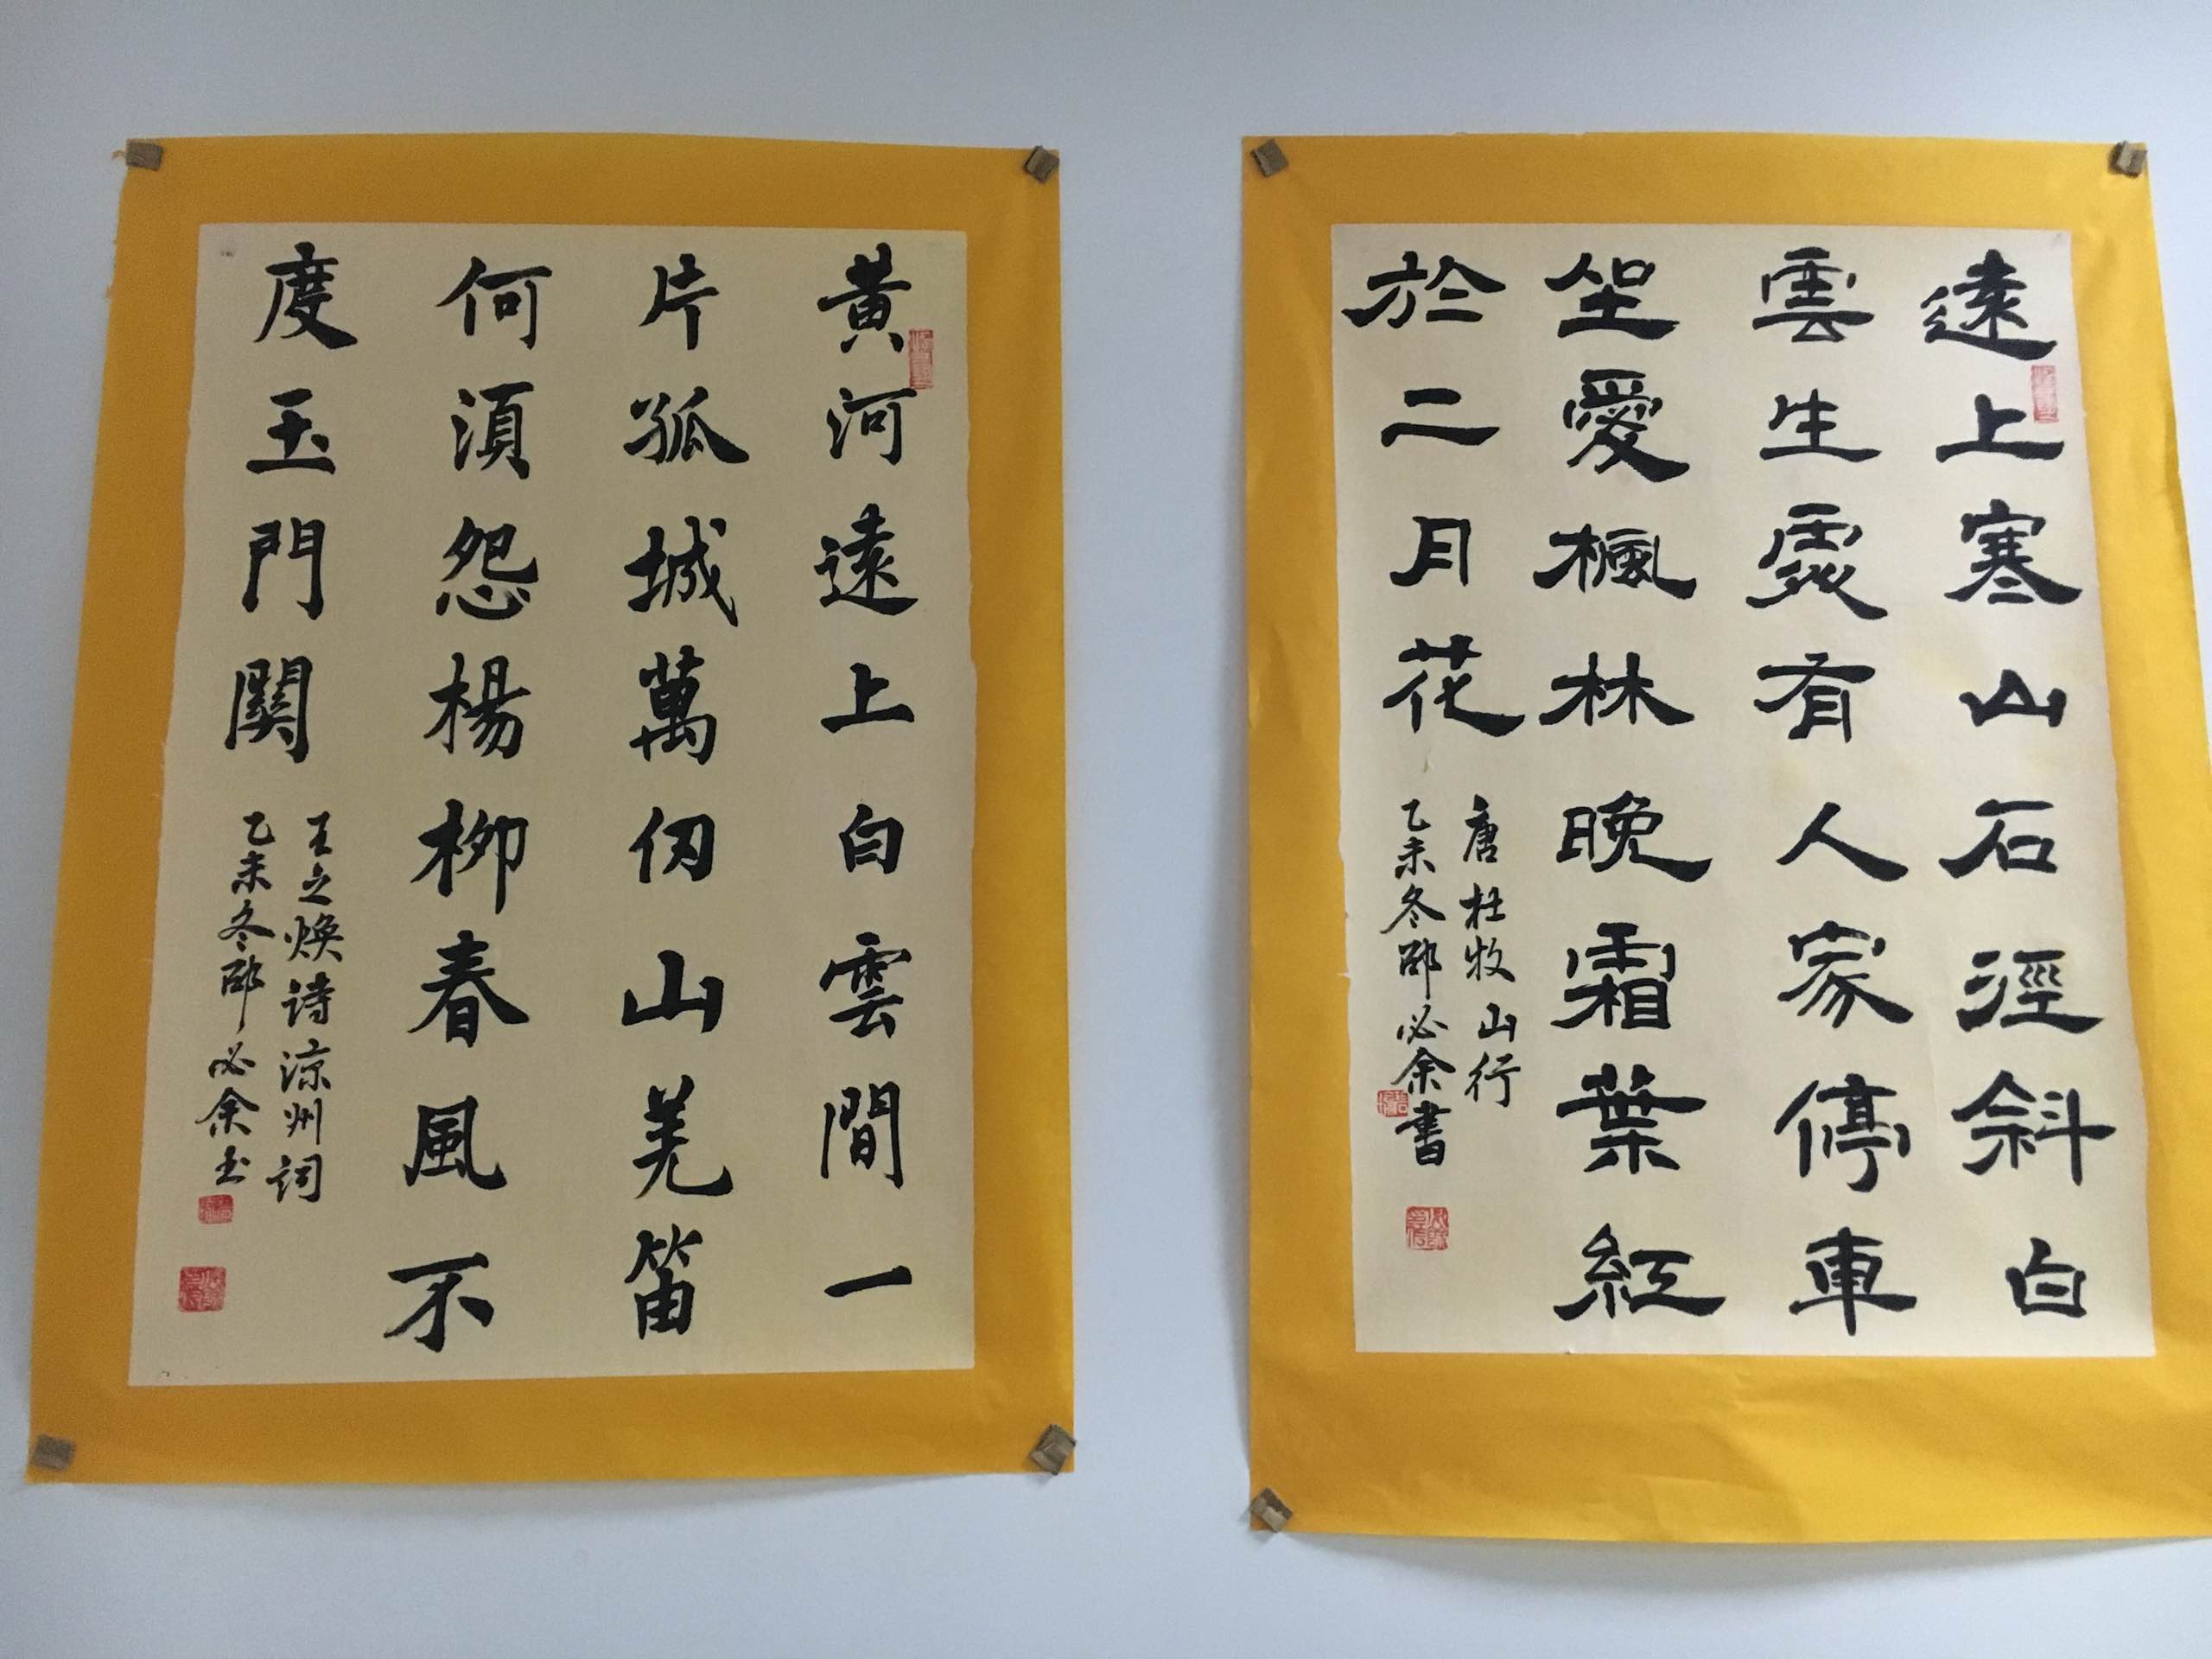 黄河遠上白雲間一
片孤城萬仞山羌笛
何須怨楊柳春風不
度玉門關
王之焕诗涼州詞
乙未冬邵必余书
遠上寒山石涇斜白
雲生霙有人家停車
坐愛楓林晚霜葉紅
於二月花
唐杜牧山行
乙未冬邵必余書